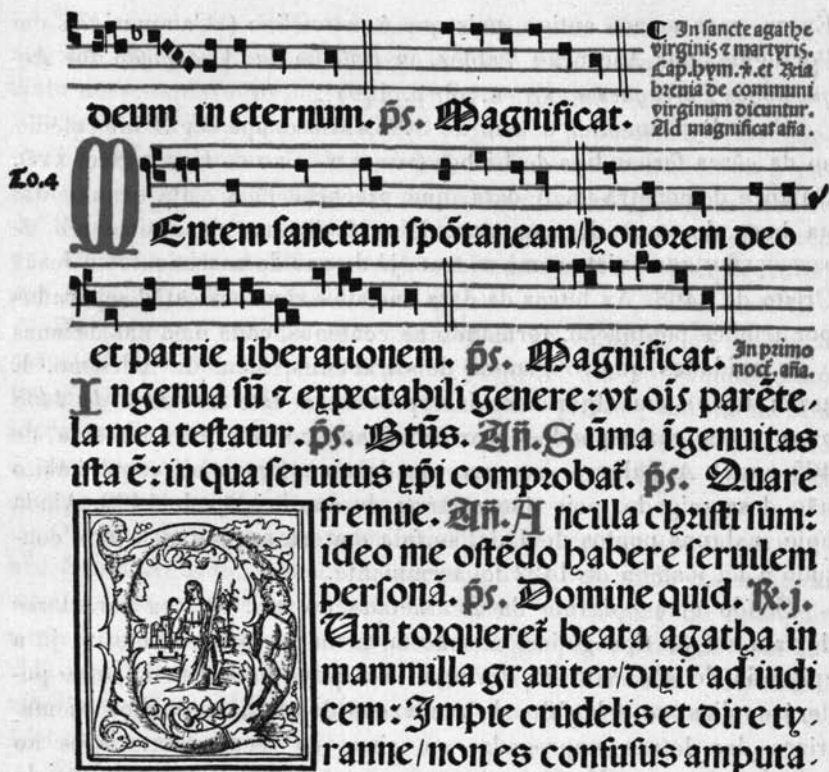 deum in eternum. p̄s. Magnificat.
¶ In sancte agathe
virginis ⁊ martyris.
Cap. hym. ℣. et
breuia de communi
virginum dicuntur.
Ad magnificat añā.
To.4
MEntem sanctam spōtaneam/honorem deo
et patrie liberationem. p̄s. Magnificat.
In primo
noct. añā.
Ingenua sū ⁊ expectabili genere. vt oīs parēte.
la mea testatur. p̄s. Btūs. Añ. Sūma īgenuitas
ista ē: in qua seruitus xp̄i comprobat̄. p̄s. Quare
fremue. Añ. Ancilla christi sum:
ideo me ostēdo habere seruilem
personā. p̄s. Domine quid. ℟. j.
Um torqueret̄ beata agatha in
mammilla grauiter/dixit ad iudi
cem: Impie crudelis et dire ty
ranne/non es confusus amputa